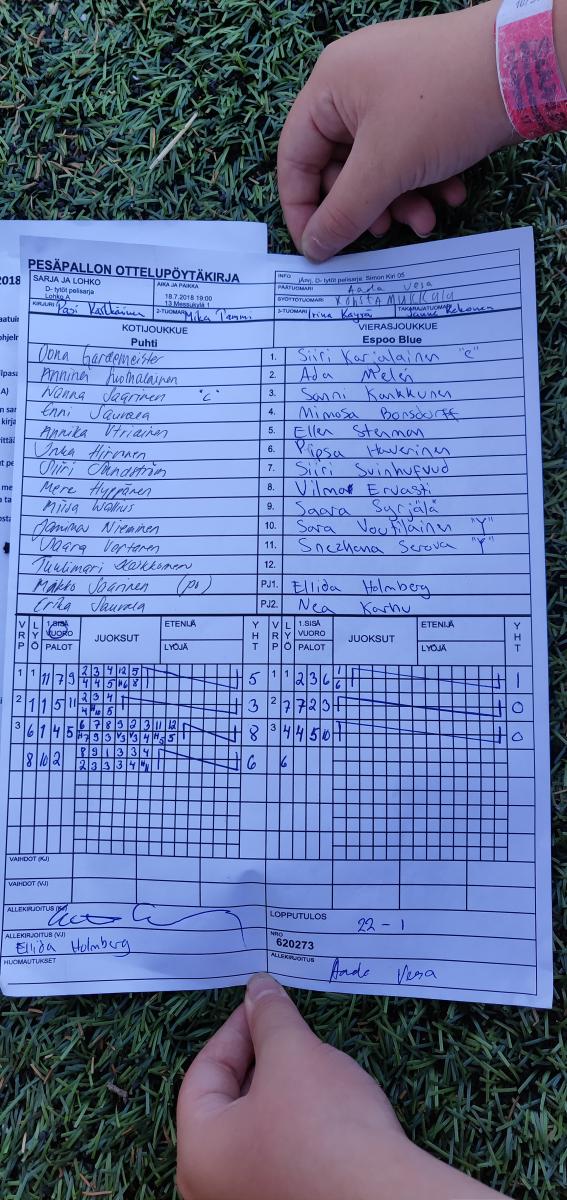 2018
PESÄPALLON OTTELUPÖYTÄKIRJA
SARJA JA LOHKO
D- tytöt pelisarja
Lohko A
AIKA JA PAIKKA
18.7.2018 19:00
13 Messukylä 1
INFO
järj. D- tytöt pelisarja, Simon Kiri 05
PÄÄTUOMARI Aada Vesa
SYÖTTÖTUOMARI
KIRJURI Pasi
2-TUOMARI Mika Tammi
3-TUOMARI Irina Käyrä
TAKARAJATUOMARI Janne Rekonen
KOTIJOUKKUE
Puhti
VIERASJOUKKUE
Espoo Blue
Oona Gardemeister 1. Siiri Karjalainen "c"
Anniina 2. Ada Melén
Nanna Saarinen "c" 3. Sanni Kankkunen
Enni Saurala 4. Mimosa Bonsdorff
Annika Utriainen 5. Ellen Stenman
Inka Hirvonen 6. Pipsa Haverinen
Siiri Sundström 7. Siiri Svinhufvud
Mere Hyppänen 8. Vilma Ervasti
Miisa Wallius 9. Saara Syrjälä
Janina Nieminen 10. Sara Voutilainen "Y"
Vaara Vartanen 11. Snezhana Serova "Y"
Tuulimari Kekkonen 12.
Makko Saarinen (po) PJ1. Ellida Holmberg
Erika Saurala PJ2. Nea Karhu
VRP LYÖ 1.SISÄ VUORO PALOT JUOKSUT ETENIJÄ LYÖJÄ YHT VRP LYÖ 1.SISÄ VUORO PALOT JUOKSUT ETENIJÄ LYÖJÄ YHT
1 1 11 7 9 2 3 4 12 5 5 1 1 2 3 6 1 1
4 4 5 H6 8 6
2 1 1 5 11 2 3 4 3 2 7 7 2 3 0
4 H10 5
3 6 1 4 5 6 7 8 9 2 3 11 12 8 3 4 4 5 10 0
H7 9 3 V3 V3 4 H5 5
8 10 2 8 9 1 3 3 4 6 6
2 3 3 3 4 H11
VAIHDOT (KJ)
VAIHDOT (VJ)
ALLEKIRJOITUS (KJ)
LOPPUTULOS 22 - 1
ALLEKIRJOITUS (VJ)
Ellida Holmberg
NRO
620273
HUOMAUTUKSET
ALLEKIRJOITUS
Aada Vesa